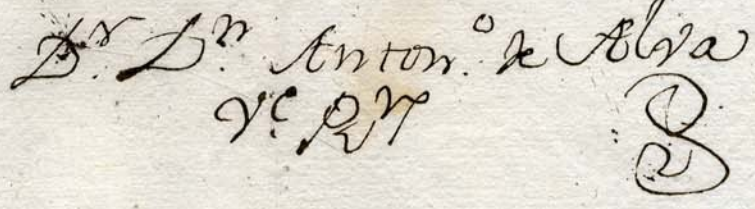 D.ʳ D.ⁿ Anton.º de Alva
V.ᵉ R.ᵒʳ